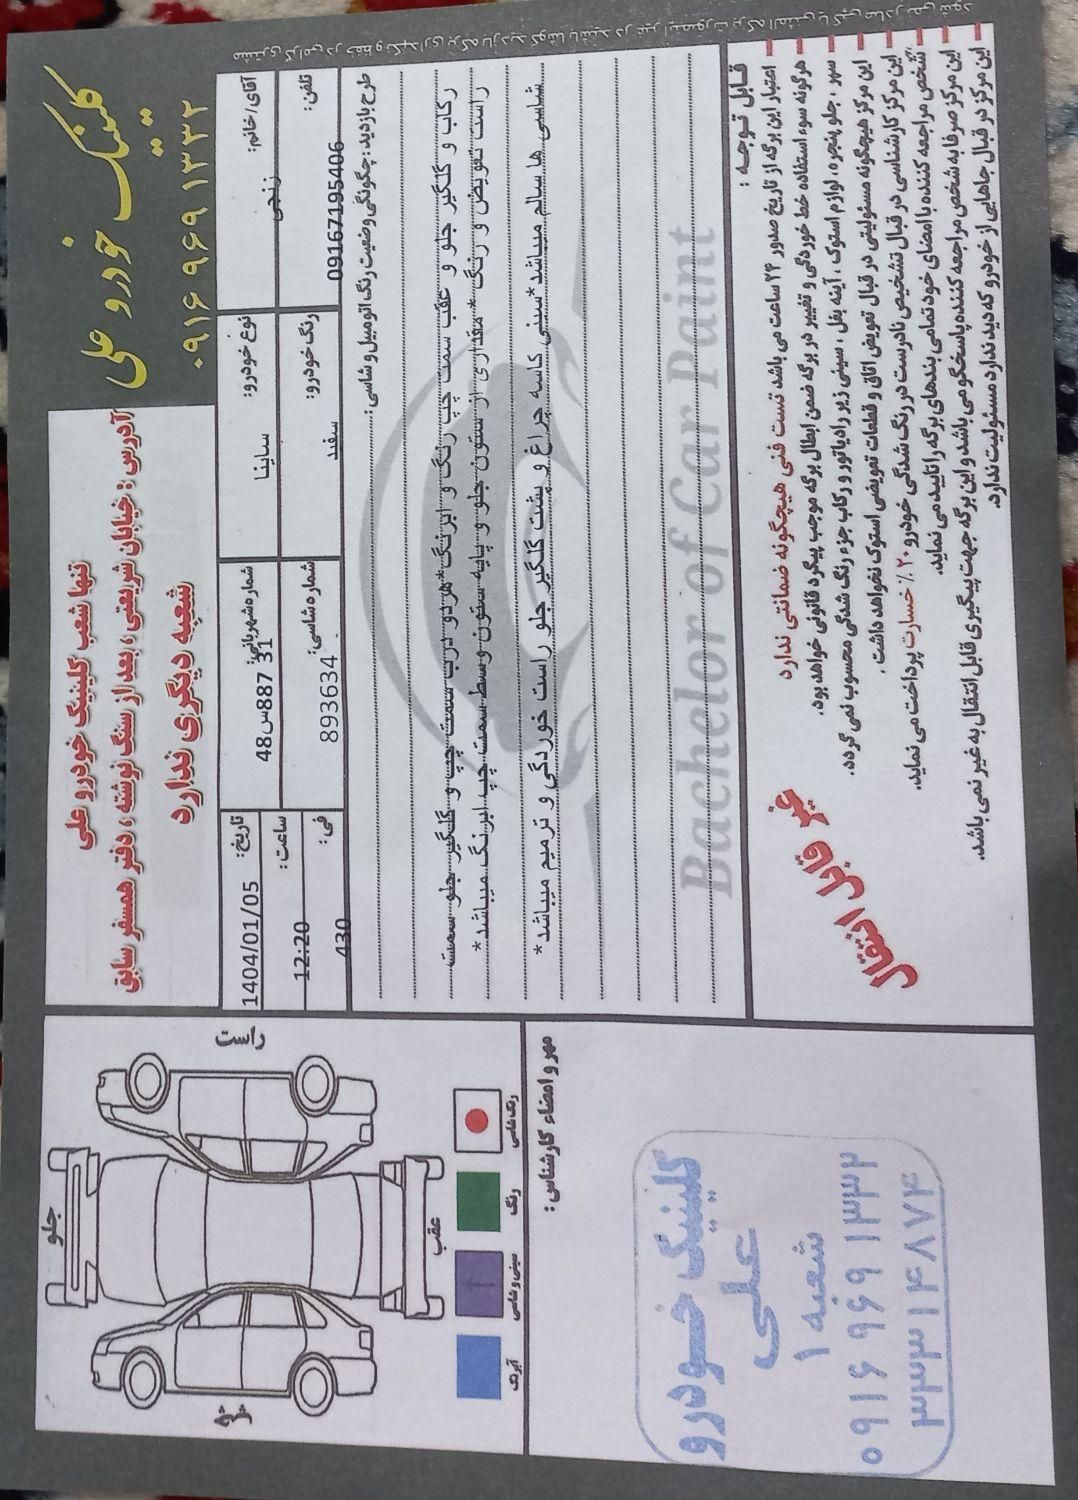 کلینیک خودرو علی
۰۹۱۶ ۹۶۹ ۱۳۳۲
تنها شعب کلینیک خودرو علی
آدرس: خیابان شریعتی، بعد از سنگ نوشته، دفتر همسفر سابق
شعبه دیگری ندارد
آقای/خانم: زنجی
نوع خودرو: ساینا
شماره شهربانی: 48س887 31
تاریخ: 1404/01/05
تلفن: 09167195406
رنگ خودرو: سفید
شماره شاسی: 893634
ساعت: 12:20
فی: 430
طرح بازدید: چگونگی وضعیت رنگ اتومبیل و شاسی:
رکاب و گلگیر جلو و عقب سمت چپ رنگ و ابرنگ*هردو درب سمت چپ و گلگیر جلو سمت
راست تعویض و رنگ *مقداری از ستون جلو و پایه ستون وسط سمت چپ ابرنگ میباشد*
شاسی ها سالم میباشد*سینی کاسه چراغ و پشت گلگیر جلو راست خوردگی و ترمیم میباشد*
Bachelor of Car Paint
قابل توجه:
اعتبار این برگه از تاریخ صدور ۲۴ ساعت می باشد تست فنی هیچگونه ضمانتی ندارد
هرگونه سوء استفاده خط خوردگی و تغییر در برگه ضمن ابطال برگه موجب پیگرد قانونی خواهد بود.
سپر، جلو پنجره، لوازم استوک، آینه بغل، سینی زیر رادیاتور و رکاب جزء رنگ شدگی محسوب نمی گردد.
این مرکز هیچگونه مسئولیتی در قبال تعویض اتاق و قطعات تعویضی استوک نخواهد داشت.
این مرکز کارشناسی در قبال تشخیص نادرست در رنگ شدگی خودرو ۲۰٪ خسارت پرداخت می نماید.
شخص مراجعه کننده با امضای خود تمامی بندهای برگه را تایید می نماید.
این مرکز صرفا به شخص مراجعه کننده پاسخگو می باشد و این برگه جهت پیگیری قابل انتقال به غیر نمی باشد.
این مرکز در قبال جاهایی از خودرو که دید ندارد مسئولیت ندارد.
غیر قابل انتقال
راست
جلو
عقب
چپ
رنگ شاسی
رنگ
سینی و شاسی
آبرنگ
مهر و امضاء کارشناس:
کلینیک خودرو
علی
شعبه ۱
۰۹۱۶ ۹۶۹ ۱۳۳۲
۳۳۳۱۴۸۷۴